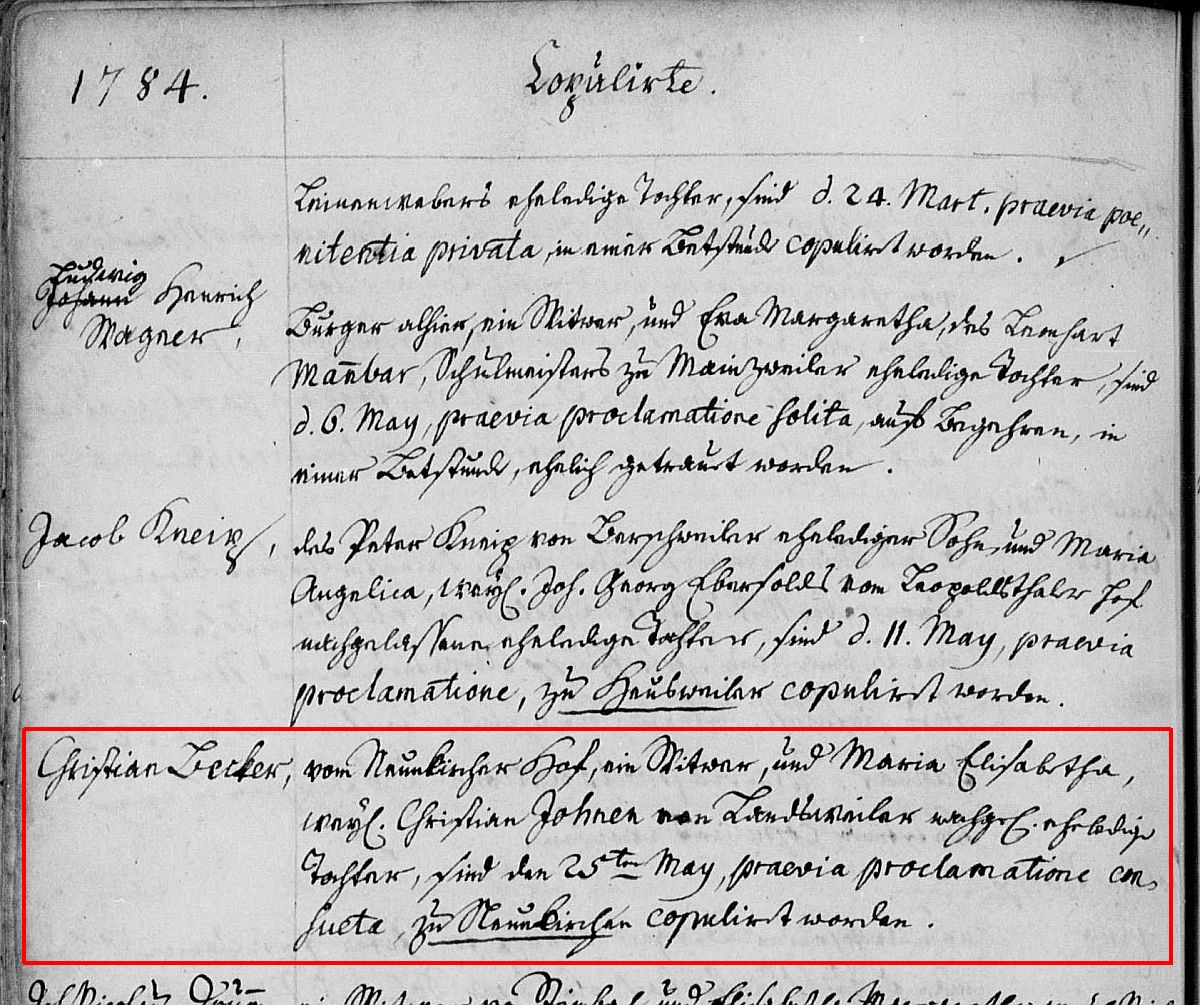 1784.
Copulirte.
Leinenwebers eheledige Tochter, sind d. 24. Mart. praevia poe„
nitentia privata, in einer Betstunde copulirt worden.
Ludwig
Johann Henrich
Wagner,
Burger alhier, ein Witwer, und Eva Margaretha, des Leonhart
Mannbar, Schulmeisters zu Mainzweiler eheledige Tochter, sind
d. 6. May, praevia proclamatione solita, aufs Begehren, in
einer Betstunde, ehelich getraut worden.
Jacob Kneip,
des Peter Kneip von Berschweiler ehelediger Sohn, und Maria
Angelica, weyl. Joh. Georg Ebersolds vom Leopoldsthaler Hof
nachgelassene eheledige Tochter, sind d. 11. May, praevia
proclamatione, zu Heusweiler copulirt worden.
Christian Becker,
vom Neunkircher Hof, ein Witwer, und Maria Elisabetha,
weyl. Christian Johnen von Landsweiler nachgel. eheledige
Tochter, sind den 25ten May, praevia proclamatione con„
sueta, zu Neunkirchen copulirt worden.
ein Witwer und Elisabetha